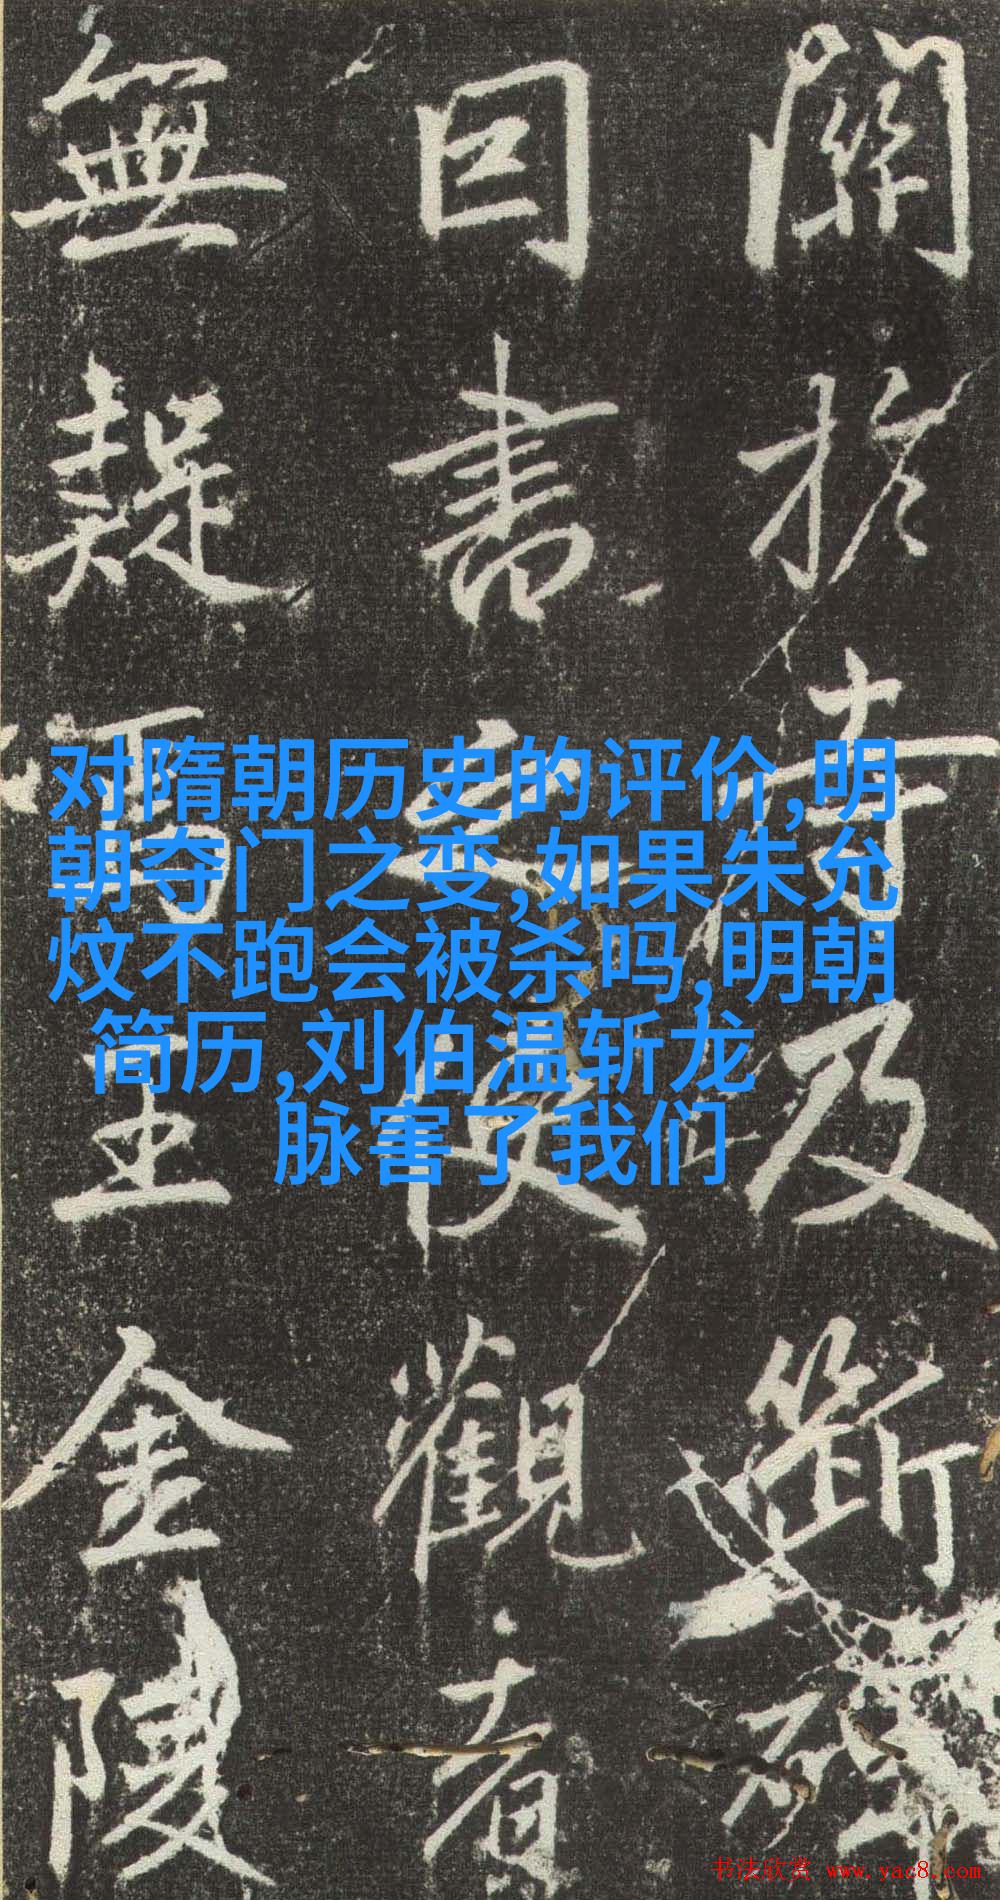 關於古及斷碑
曰書之使觀者
無疑焉王金陵
对隋朝历史的评价,明
朝夺门之变,如果朱允
炆不跑会被杀吗,明朝
简历,刘伯温斩龙
脉害了我们
书法欣赏 www.yac8.com